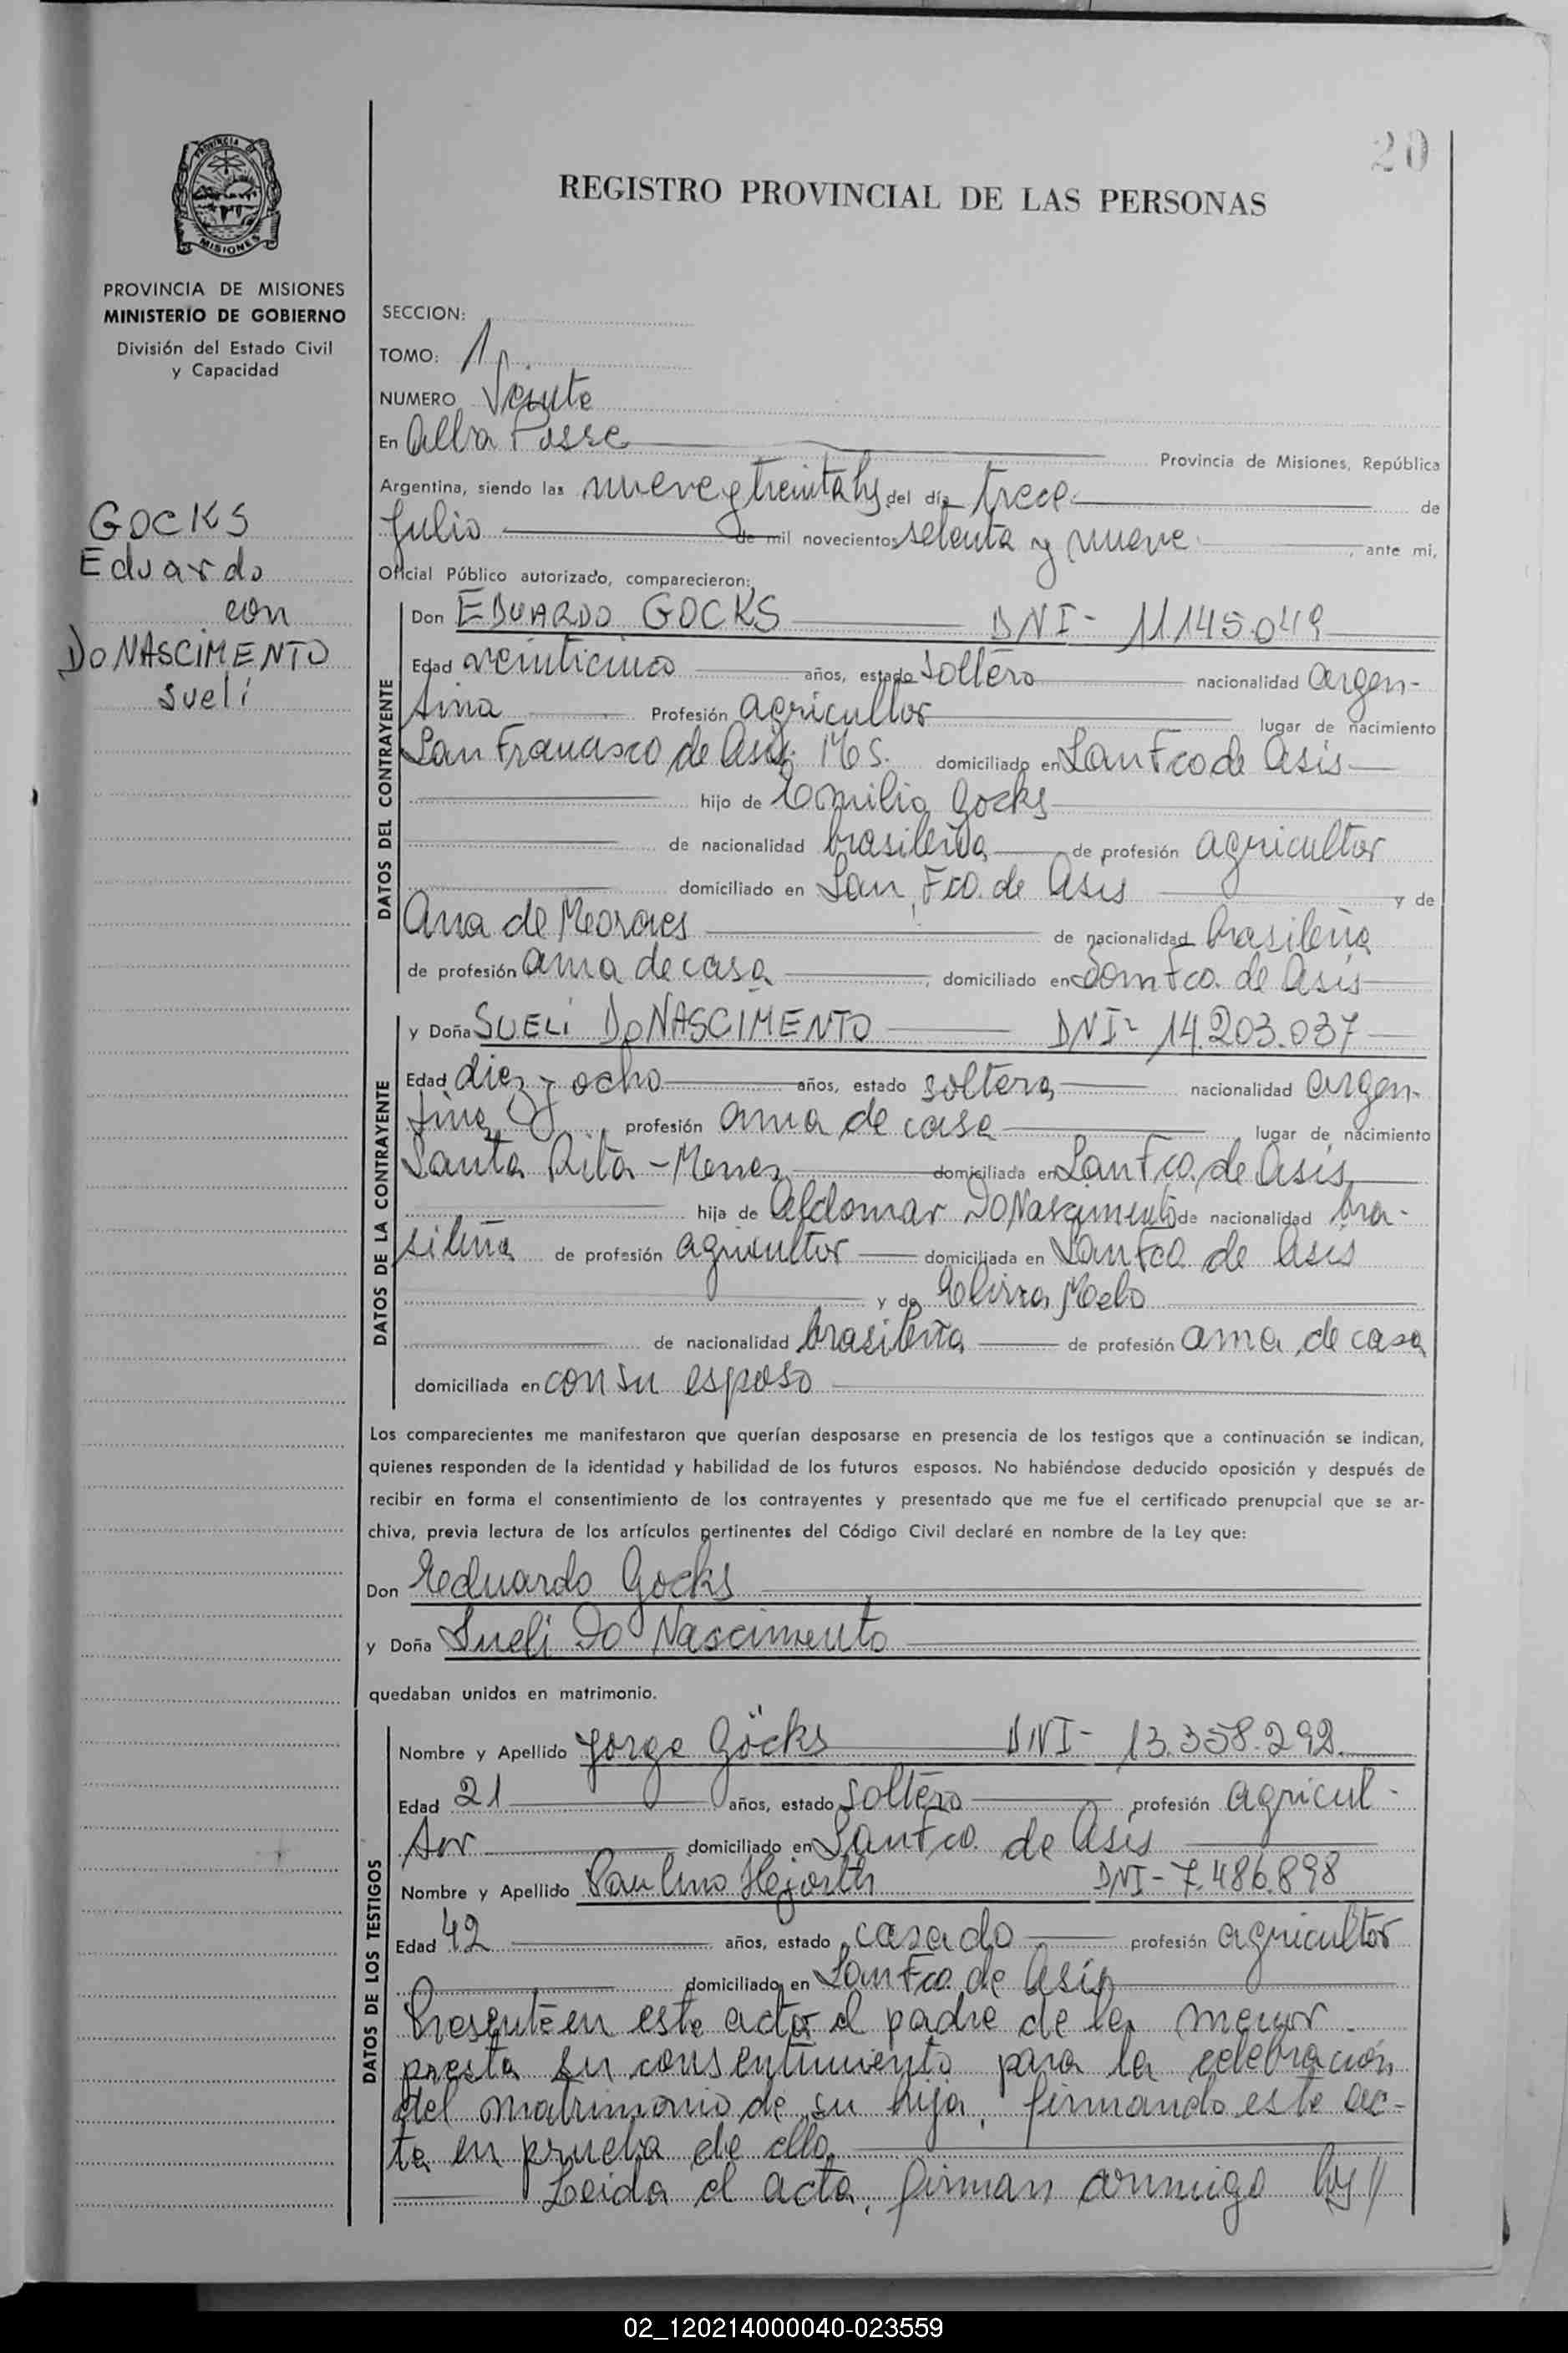 20
REGISTRO PROVINCIAL DE LAS PERSONAS
PROVINCIA DE
MISIONES
PROVINCIA DE MISIONES
MINISTERIO DE GOBIERNO
División del Estado Civil
y Capacidad
GOCKS
Eduardo
con
DO NASCIMENTO
Sueli
SECCION:
TOMO: 1
NUMERO Veinte
En Alba Posse Provincia de Misiones, República
Argentina, siendo las nueve y treinta hs del día trece de
Julio de mil novecientos setenta y nueve, ante mi,
Oficial Público autorizado, comparecieron:
DATOS DEL CONTRAYENTE
Don EDUARDO GOCKS DNI- 11.145.049
Edad veinticinco años, estado soltero nacionalidad argen-
tina Profesión agricultor lugar de nacimiento
San Francisco de Asis domiciliado en San Fco de Asis
hijo de Emilio Gocks
de nacionalidad brasileña de profesión agricultor
domiciliado en San Fco. de Asis y de
Ana de Moraes de nacionalidad brasileña
de profesión ama de casa, domiciliado en San Fco. de Asis
DATOS DE LA CONTRAYENTE
y Doña SUELI DO NASCIMENTO DNI- 14.203.037
Edad diez y ocho años, estado soltera nacionalidad argen-
tina, profesión ama de casa lugar de nacimiento
Santa Rita - domiciliada en San Fco. de Asis
hija de Aldomar Do Nascimento de nacionalidad bra-
sileña de profesión agricultor domiciliada en San Fco de Asis
y de Elvira Melo
de nacionalidad brasileña de profesión ama de casa
domiciliada en con su esposo
Los comparecientes me manifestaron que querían desposarse en presencia de los testigos que a continuación se indican,
quienes responden de la identidad y habilidad de los futuros esposos. No habiéndose deducido oposición y después de
recibir en forma el consentimiento de los contrayentes y presentado que me fue el certificado prenupcial que se ar-
chiva, previa lectura de los artículos pertinentes del Código Civil declaré en nombre de la Ley que:
Don Eduardo Gocks
y Doña Sueli Do Nascimento
quedaban unidos en matrimonio.
DATOS DE LOS TESTIGOS
Nombre y Apellido Jorge Göcks DNI- 13.358.292.
Edad 21 años, estado soltero profesión agricul-
tor domiciliado en San Fco. de Asis
Nombre y Apellido Paulino DNI- 7.486.898
Edad 42 años, estado casado profesión agricultor
domiciliado en San Fco. de Asis
Presente en este acto el padre de la menor
presta su consentimiento para la celebración
del matrimonio de su hija, firmando este ac-
ta en prueba de ello
Leida el acta, firman conmigo los //
02_120214000040-023559